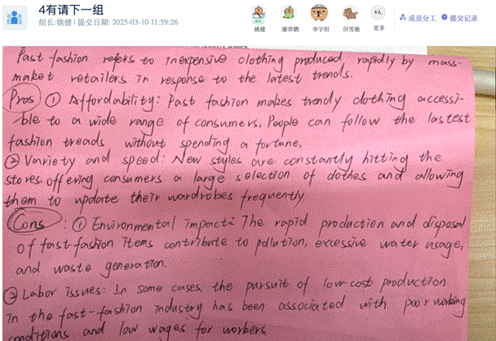 4有请下一组
组长:姚健 | 提交日期: 2025-03-10 11:59:26
姚健 廖荣鹏 李宇阳 田雪敏 更多
成员分工 提交记录
Fast fashion refers to inexpensive clothing produced rapidly by mass-
market retailers in response to the latest trends.
Pros ① Affordability: Fast fashion makes trendy clothing accessi-
ble to a wide range of consumers. People can follow the lastest
fashion treads without spending a fortune.
② Variety and speed: New styles are constantly hitting the
stores, offering consumers a large selection of clothes and allowing
them to update their wardrobes frequently
Cons : ① Environmental impact: The rapid production and disposal
of fast-fashion items contribute to pollution, excessive water usage,
and waste generation.
② Labor issues: In some cases, the pursuit of low-cost production
in the fast-fashion industry has been associated with poor working
conditions and low wages for workers